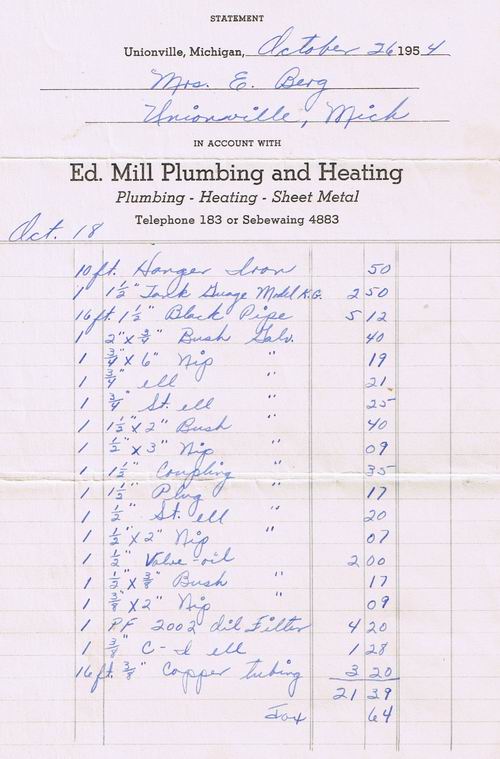 STATEMENT
Unionville, Michigan, October 26 1954
Mrs. E. Berg
Unionville, Mich
IN ACCOUNT WITH
Ed. Mill Plumbing and Heating
Plumbing - Heating - Sheet Metal
Telephone 183 or Sebewaing 4883
Oct. 18
10 ft. Hanger Iron 50
1 1½" Tank Guage Model K.G. 2 50
16 ft. 1½" Black Pipe 5 12
1 2" x ¾" Bush Galv. 40
1 ¾" x 6" Nip " 19
1 ¾" ell " 21
1 ¾" St. ell " 25
1 1½" x 2" Bush " 40
1 ½" x 3" Nip " 09
1 1½" Coupling " 35
1 1½" Plug " 17
1 ½" St. ell " 20
1 ½" x 2" Nip " 07
1 ½" Valve-oil 2 00
1 ½" x ⅜" Bush " 17
1 ⅜" x 2" Nip " 09
1 PF 2002 Oil Filter 4 20
1 ⅜" C-I ell 1 28
16 ft. ⅜" Copper tubing 3 20
21 39
Tax 64